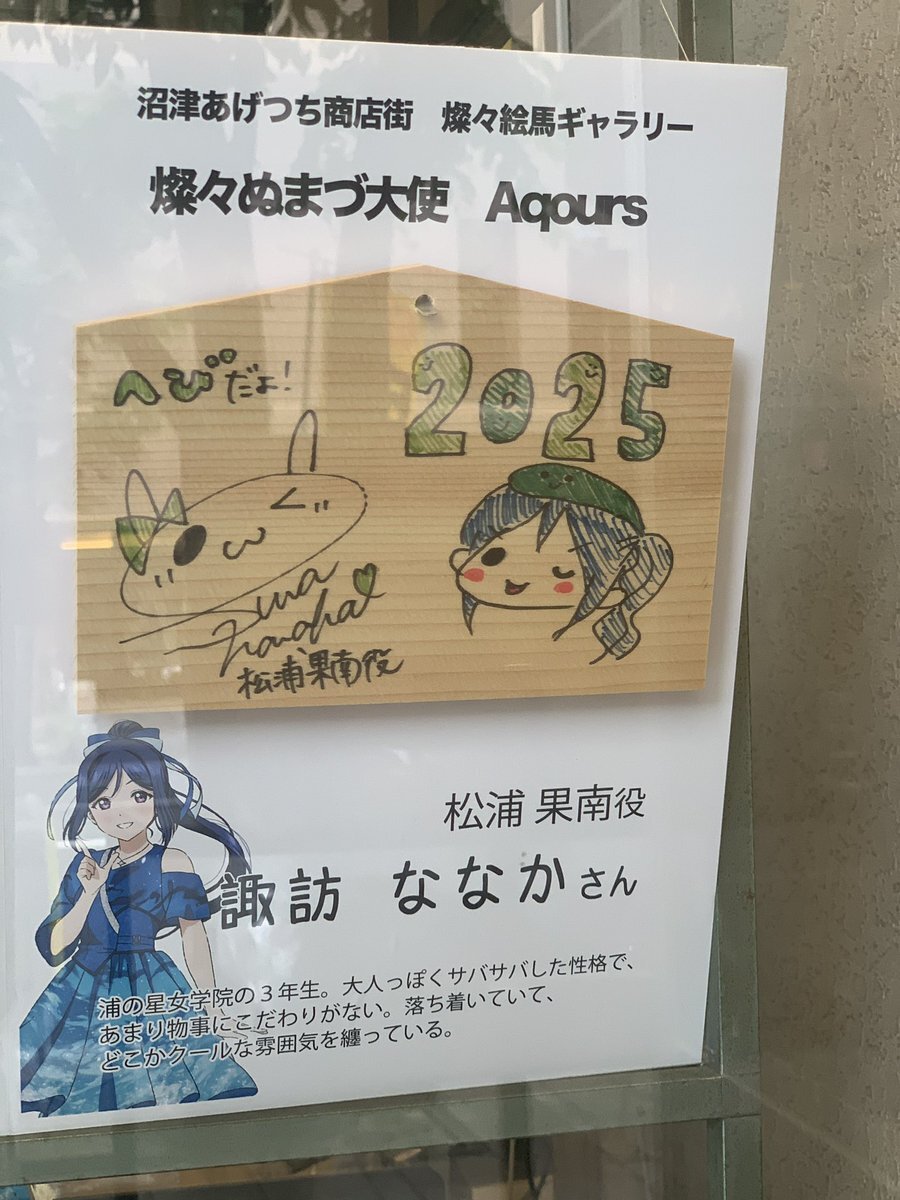 沼津あげつち商店街　燦々絵馬ギャラリー
燦々ぬまづ大使　Aqours
へびだよ!
2025
松浦果南役
松浦 果南役
諏訪　ななかさん
浦の星女学院の3年生。大人っぽくサバサバした性格で、
あまり物事にこだわりがない。落ち着いていて、
どこかクールな雰囲気を纏っている。